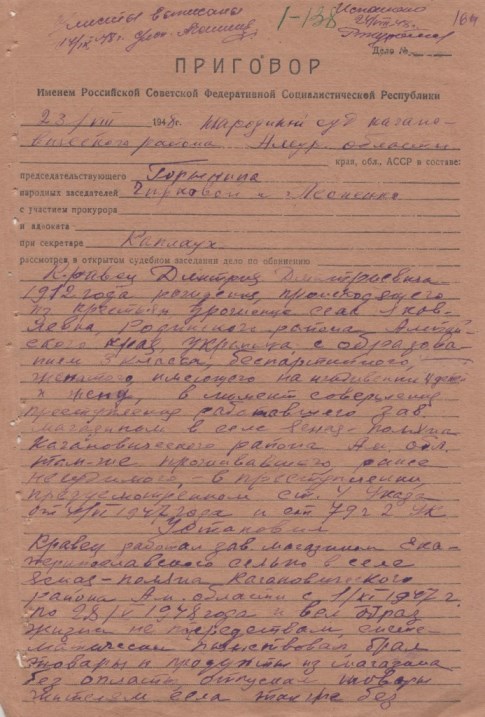 листы выписаны
1-138
Исполнено
164
Дело №
ПРИГОВОР
Именем Российской Советской Федеративной Социалистической Республики
23/VIII 1948г. Народный суд Кагано-
вического района Амур. области
края, обл., АССР в составе:
председательствующего
народных заседателей Чирковой и
с участием прокурора
и адвоката
при секретаре
рассмотрев в открытом судебном заседании дело по обвинению
Кравец Дмитрия Дмитриевича
1912 года рождения, происходящего
из крестьян уроженец села Яков-
левка, Родинского района, Алтай-
ского края, украинца с образова-
нием 3 класса, беспартийного,
женатого имеющего на иждивении детей
и жену, в момент совершения
преступления работавшего зав.
магазином в селе
Кагановического района Ам. обл.
там-же проживавшего, ранее
не судимого, - в преступлении
предусмотренном ст. Указа
от 4/VI 1947 года и ст 79 ч 2 УК
Установил
Кравец работал зав. магазином Ека-
теринославского сельпо в селе
Кагановического
района Ам. области с 1947 г.
по 28 1948 года и вел образ
жизни не по средствам, систе-
матически пьянствовал, брал
товары и продукты из магазина
без оплаты отпускал товары
жителям села также без